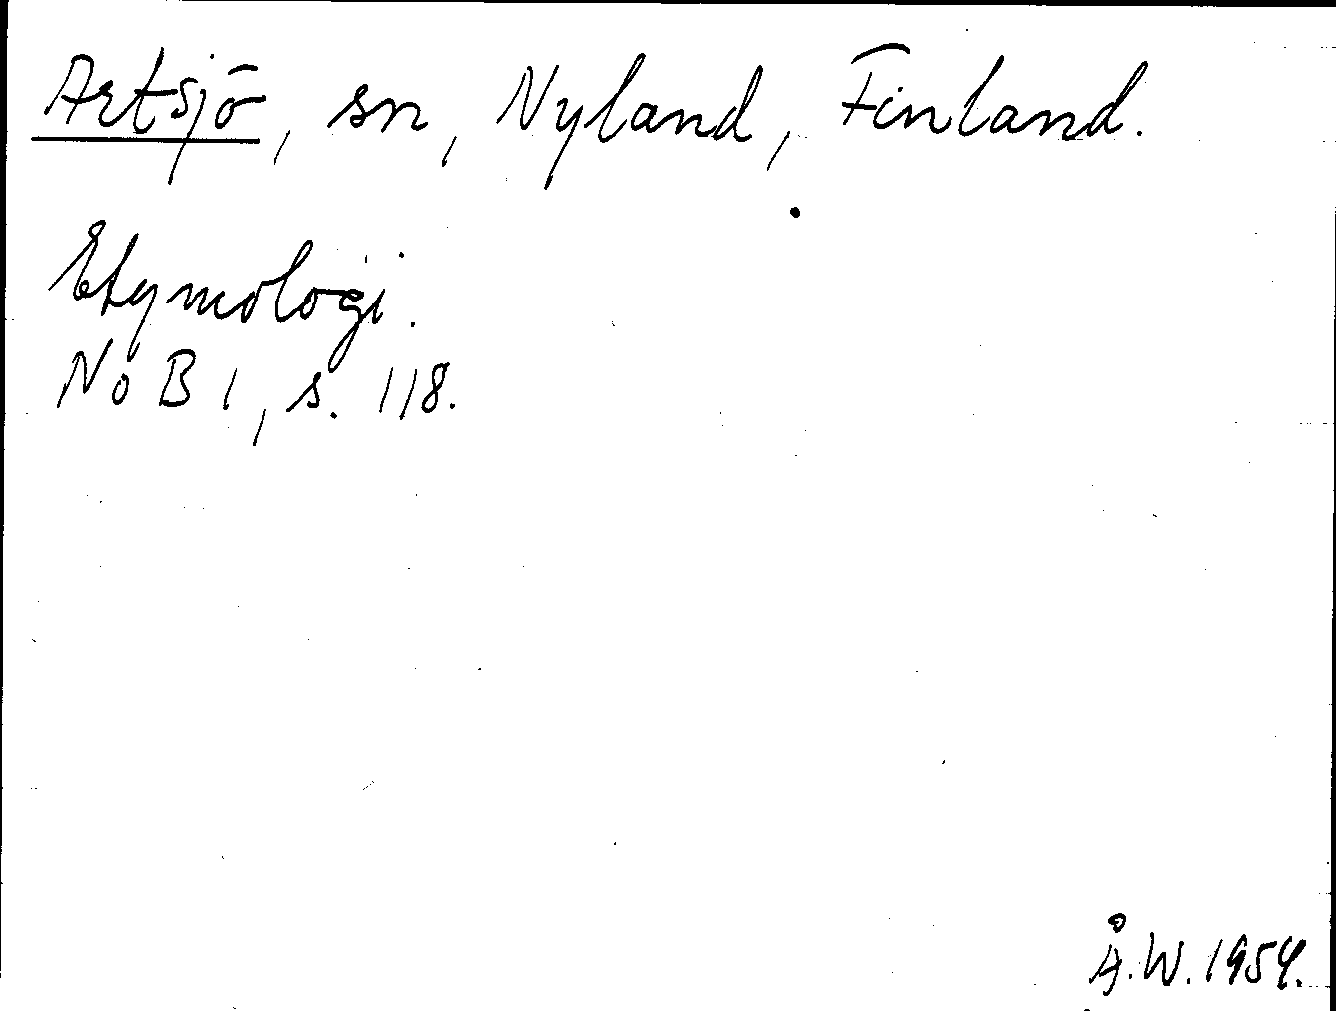 Artsjö, sn, Nyland, Finland.
Etymologi.
NoB 1, s. 118.
Å.W. 1954.